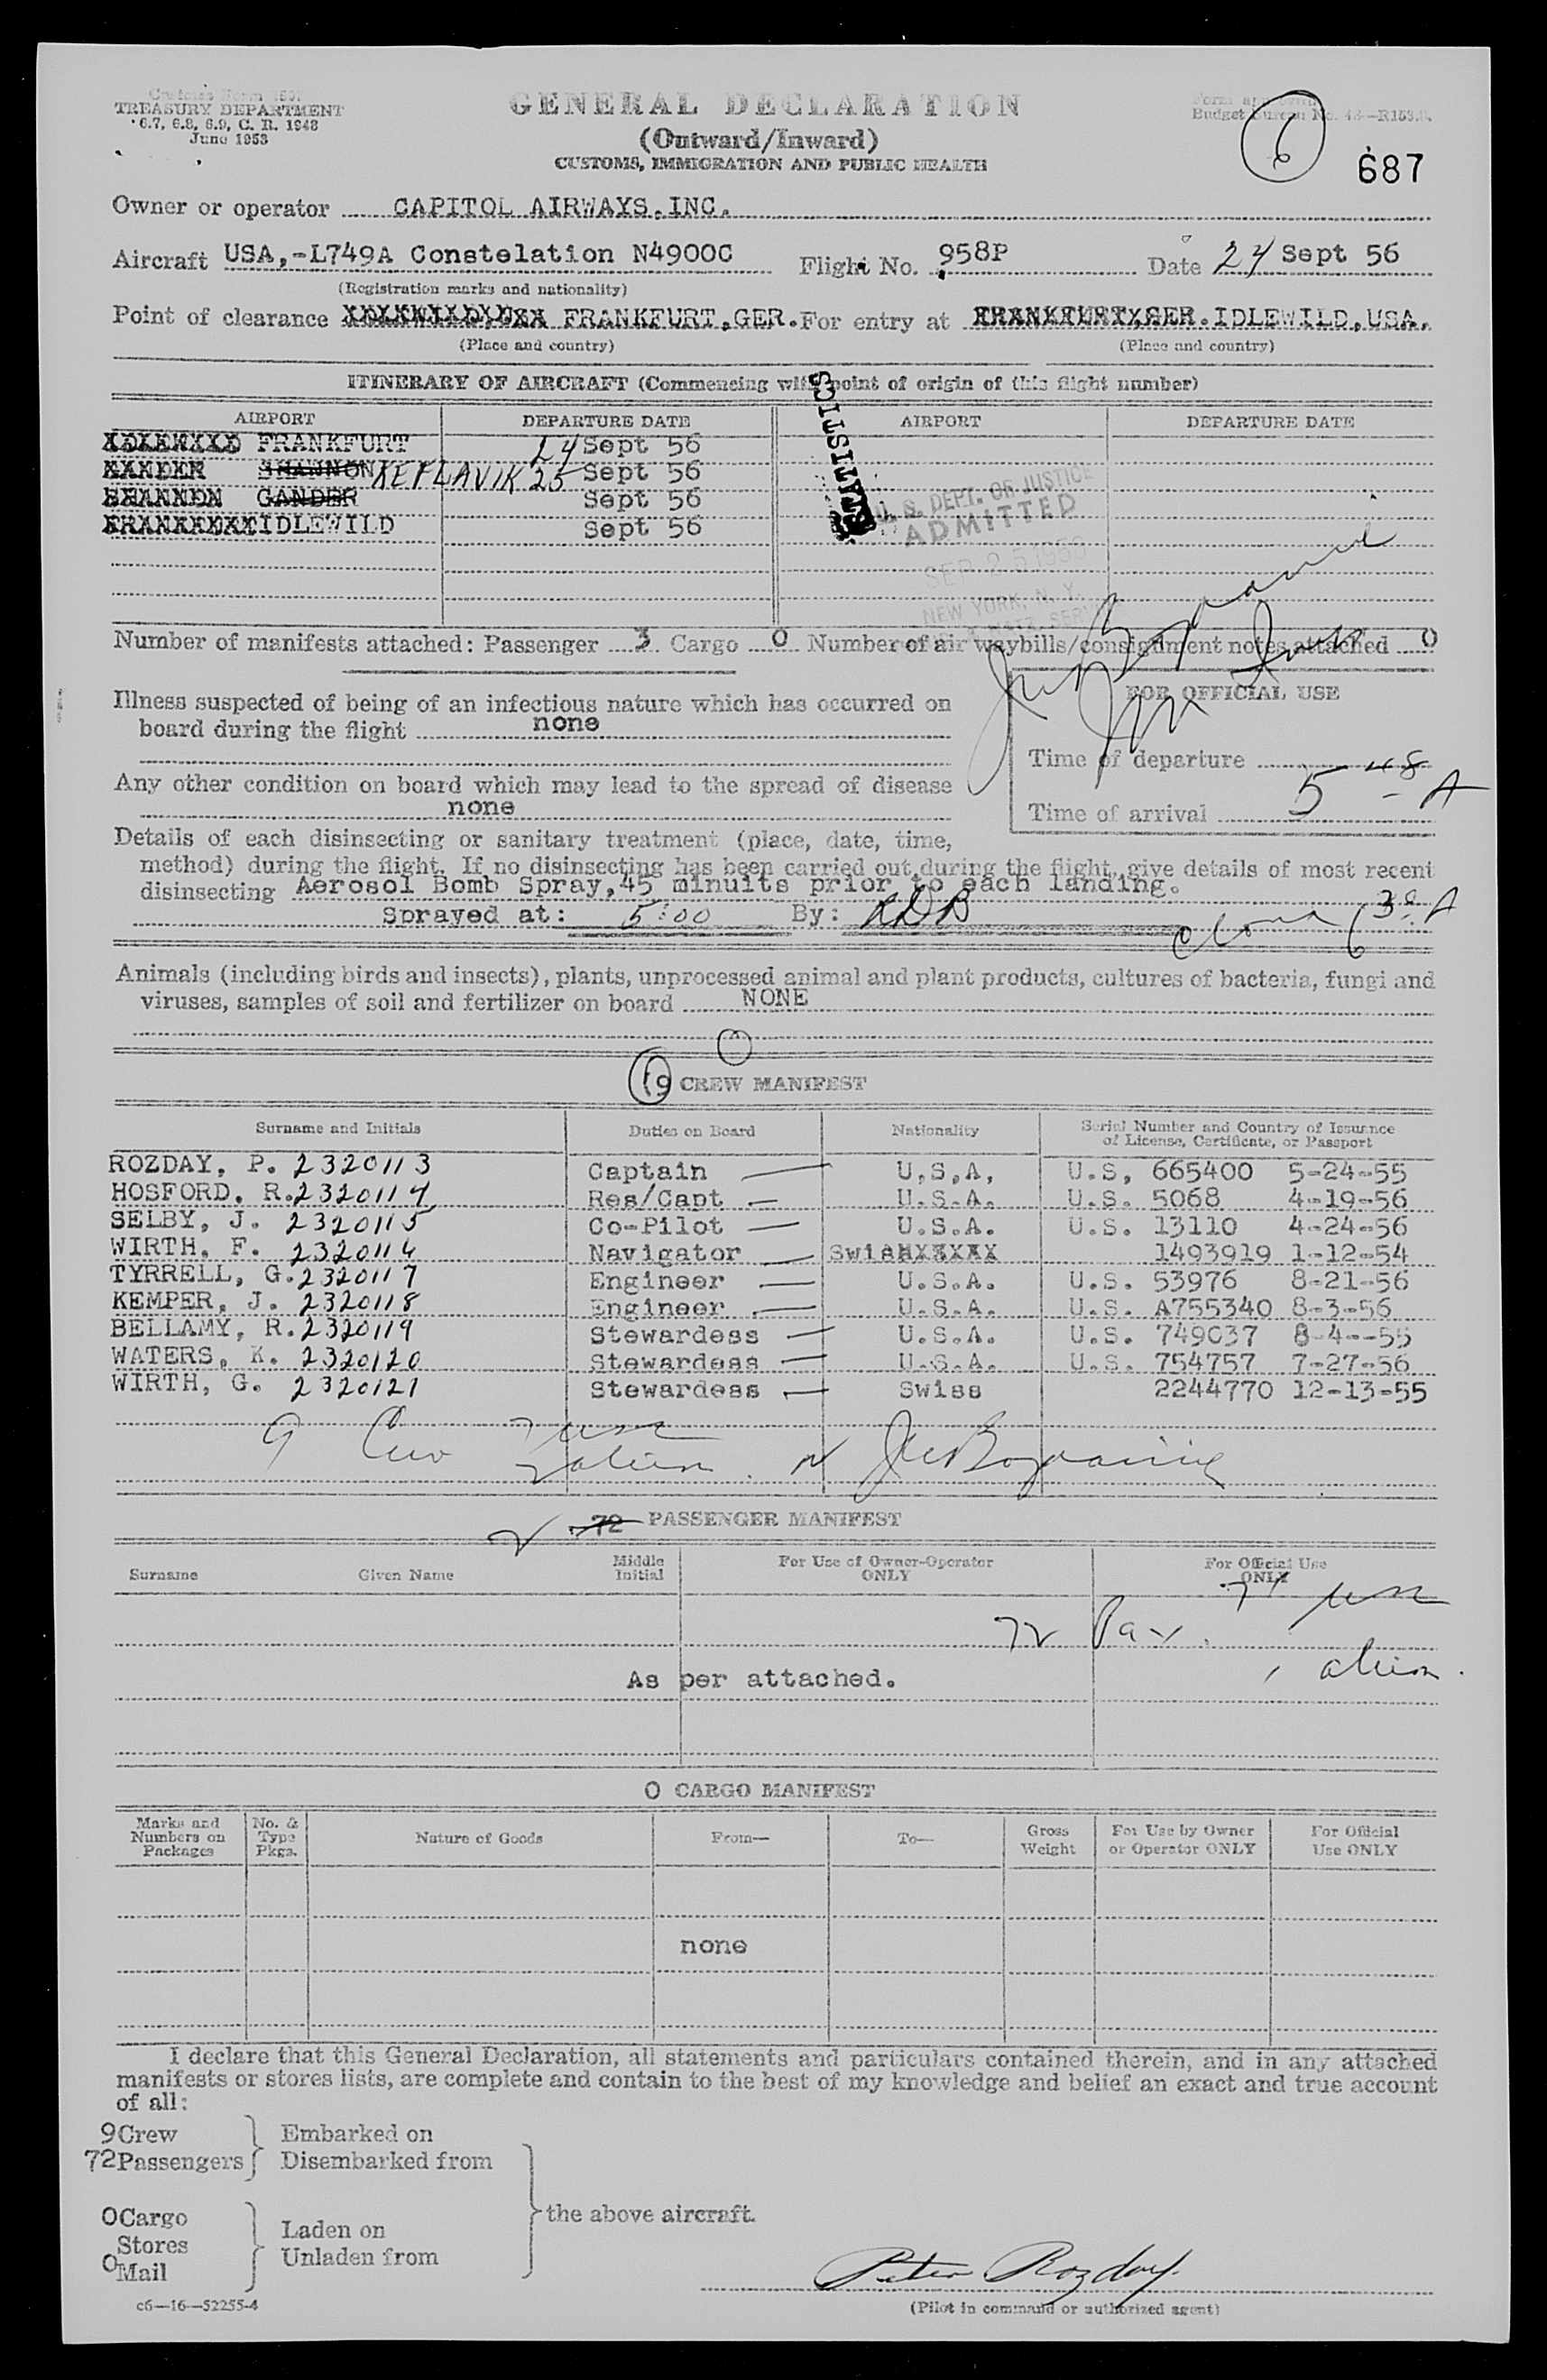 Customs Form 7507
TREASURY DEPARTMENT
6.7, 6.8, 6.9, C. R. 1948
June 1953
GENERAL DECLARATION
(Outward/Inward)
CUSTOMS, IMMIGRATION AND PUBLIC HEALTH
Form approved.
Budget Bureau No. 48—R153.
6
687
Owner or operator CAPITOL AIRWAYS, INC.
Aircraft USA,-L749A Constelation N4900C Flight No. 958P Date 24 Sept 56
(Registration marks and nationality)
Point of clearance FRANKFURT,GER. For entry at FRANKFURT,GER. IDLEWILD,USA.
(Place and country) (Place and country)
ITINERARY OF AIRCRAFT (Commencing with point of origin of this flight number)
AIRPORT DEPARTURE DATE AIRPORT DEPARTURE DATE
IDLEWILD FRANKFURT 24 Sept 56
GANDER SHANNON KEFLAVIK 25 Sept 56
SHANNON GANDER Sept 56
FRANKFURT IDLEWILD Sept 56
STATISTICS
U. S. DEPT. OF JUSTICE
ADMITTED
SEP 25 1956
NEW YORK, N. Y.
Number of manifests attached: Passenger 3 Cargo 0 Number of air waybills/consignment notes attached 0
Illness suspected of being of an infectious nature which has occurred on
board during the flight none
FOR OFFICIAL USE
Time of departure
Any other condition on board which may lead to the spread of disease
none
Time of arrival 5 48 A
Details of each disinsecting or sanitary treatment (place, date, time,
method) during the flight. If no disinsecting has been carried out during the flight, give details of most recent
disinsecting Aerosol Bomb Spray,45 minuits prior to each landing.
Sprayed at: 5:00 By: RDB
6 30 A
Animals (including birds and insects), plants, unprocessed animal and plant products, cultures of bacteria, fungi and
viruses, samples of soil and fertilizer on board NONE
9 CREW MANIFEST
Surname and Initials Duties on Board Nationality Serial Number and Country of Issuance of License, Certificate, or Passport
ROZDAY, P. 2320113 Captain U.S.A. U.S. 665400 5-24-55
HOSFORD, R. 2320114 Res/Capt U.S.A. U.S. 5068 4-19-56
SELBY, J. 2320115 Co-Pilot U.S.A. U.S. 13110 4-24-56
WIRTH, F. 2320116 Navigator Swiss 1493919 1-12-54
TYRRELL, G. 2320117 Engineer U.S.A. U.S. 53976 8-21-56
KEMPER, J. 2320118 Engineer U.S.A. U.S. A755340 8-3-56
BELLAMY, R. 2320119 Stewardess U.S.A. U.S. 749037 8-4--55
WATERS, K. 2320120 Stewardess U.S.A. U.S. 754757 7-27-56
WIRTH, G. 2320121 Stewardess Swiss 2244770 12-13-55
9 Crew 7 usc
2 alien
72 PASSENGER MANIFEST
Surname Given Name Middle Initial For Use of Owner-Operator ONLY For Official Use ONLY
71 usc
72 Pax.
1 alien.
As per attached.
0 CARGO MANIFEST
Marks and Numbers on Packages No. & Type Pkgs. Nature of Goods From— To— Gross Weight For Use by Owner or Operator ONLY For Official Use ONLY
none
I declare that this General Declaration, all statements and particulars contained therein, and in any attached
manifests or stores lists, are complete and contain to the best of my knowledge and belief an exact and true account
of all:
9 Crew Embarked on
72 Passengers Disembarked from
the above aircraft.
0 Cargo Laden on
Stores
0 Mail Unladen from
Peter Rozday
c6—16—52255-4
(Pilot in command or authorized agent)